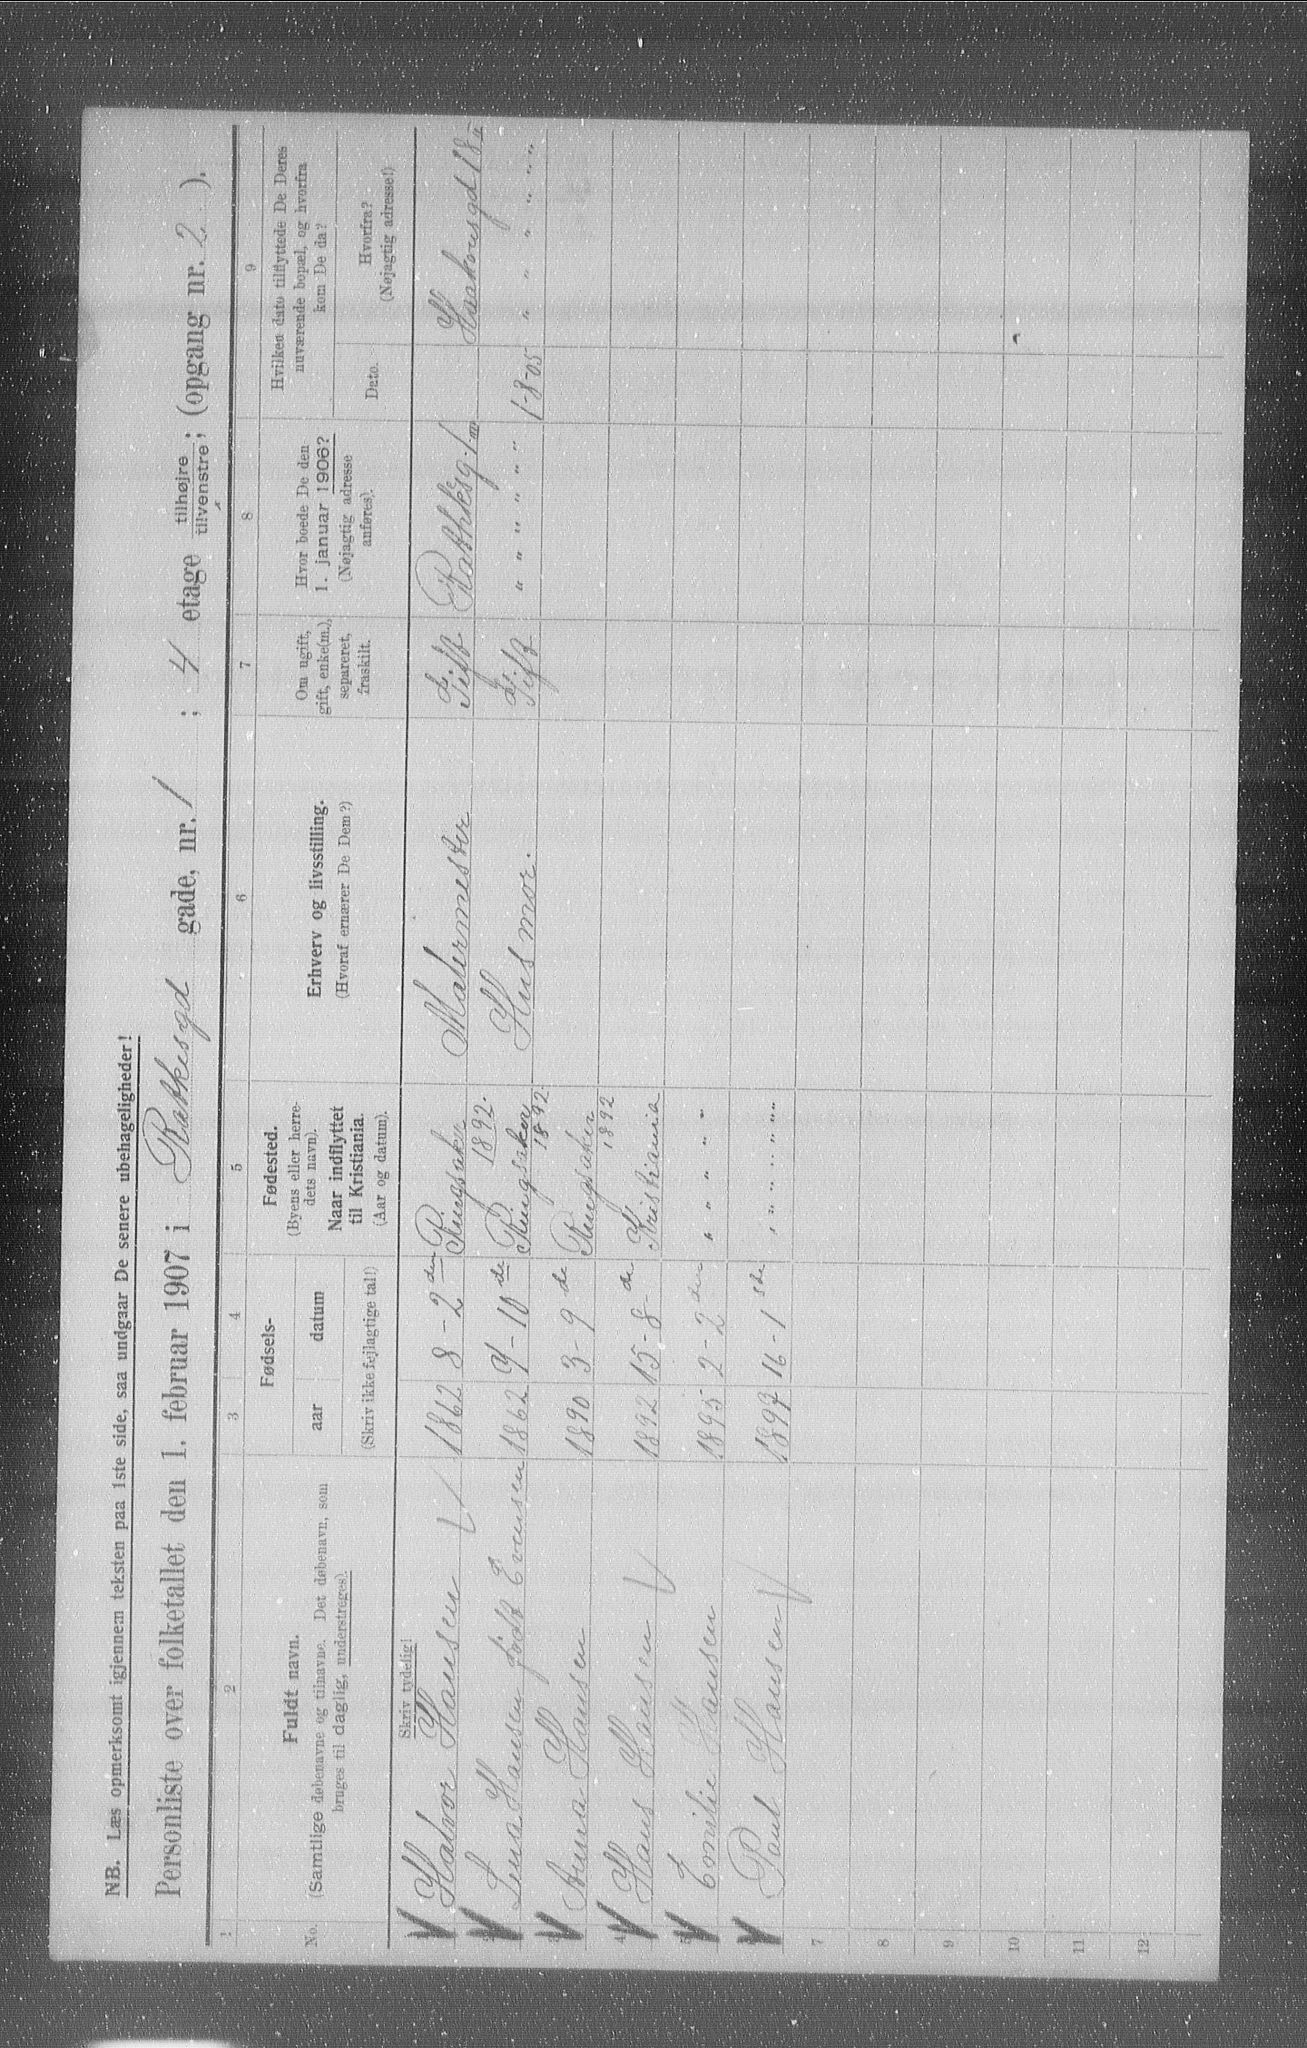 NB. Læs opmerksomt igjennem teksten paa 1ste side, saa undgaar De senere ubehageligheder!
Personliste over folketallet den 1. februar 1907 i Rathkesgd gade, nr. 1 ; 4 etage tilhøjre ; tilvenstre ; (opgang nr. 2 ).
1 2 3 4 5 6 7 8 9
No.
Fuldt navn.
(Samtlige døbenavne og tilnavne. Det døbenavn, som
bruges til daglig, understreges).
Skriv tydelig!
Fødsels-
aar datum
(Skriv ikke fejlagtige tal!)
Fødested.
(Byens eller herre-
dets navn).
Naar indflyttet
til Kristiania.
(Aar og datum).
Erhverv og livsstilling.
(Hvoraf ernærer De Dem?)
Om ugift,
gift, enke(m.),
separeret,
fraskilt.
Hvor boede De den
1. januar 1906?
(Nøjagtig adresse
anføres).
Hvilken dato tilflyttede De Deres
nuværende bopæl, og hvorfra
kom De da?
Dato.
Hvorfra?
(Nøjagtig adresse!)
Halvor Hansen 1862 8-2 den Ringsaker 1892. Malermester Gift Rathkesg. 1 Haakonsgd 18
2 Lina Hansen født Evensen 1862 9-10 de Ringsaker 1892 Husmor. Gift " " " " " " 1-8-05 " " " " " "
3 Anna Hansen 1890 3-9 de Ringsaker 1892
4 Hans Hansen 1892 15-8- de Kristiania
5 Emilie Hansen 1895 2-2 den " " " " "
Paul Hansen 1897 16-1 ste " " " " " "
7
8
9
10
11
12